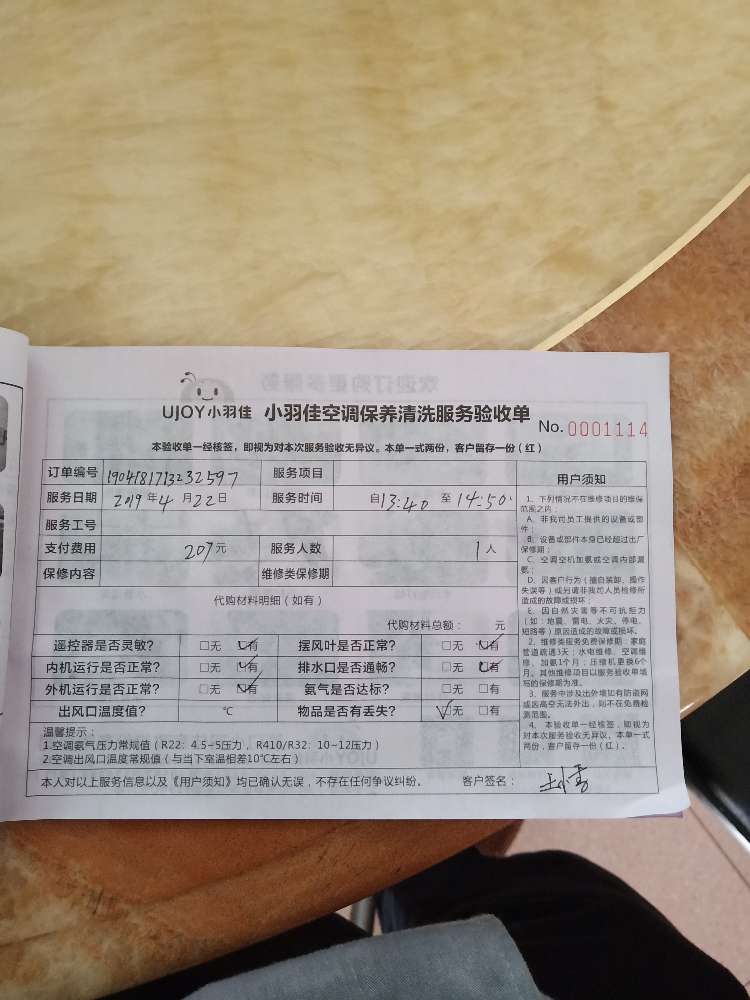 UJOY小羽佳 小羽佳空调保养清洗服务验收单 No. 0001114
本验收单一经核签，即视为对本次服务验收无异议。本单一式两份，客户留存一份（红）
订单编号 1904181713232597 服务项目
服务日期 2019年4月22日 服务时间 自13:40至14:50
服务工号
支付费用 207元 服务人数 1人
保修内容 维修类保修期
代购材料明细（如有）
代购材料总额： 元
遥控器是否灵敏？ □无 ☑有 摆风叶是否正常？ □无 ☑有
内机运行是否正常？ □无 ☑有 排水口是否通畅？ □无 ☑有
外机运行是否正常？ □无 ☑有 氨气是否达标？ □无 □有
出风口温度值？ ℃ 物品是否有丢失？ ☑无 □有
温馨提示：
1.空调氨气压力常规值（R22：4.5~5压力，R410/R32：10~12压力）
2.空调出风口温度常规值（与当下室温相差10℃左右）
本人对以上服务信息以及《用户须知》均已确认无误，不存在任何争议纠纷。 客户签名：
用户须知
1、下列情况不在维修项目的维保
范围之内：
A、非我司员工提供的设备或部
件；
B、设备或部件本身已经超过出厂
保修期；
C、空调空机加氨或空调内部漏
氨；
D、因客户行为（擅自装卸、操作
失误等）或另请非我司人员检修所
造成的故障或损坏；
E、因自然灾害等不可抗拒力
（如：地震、雷电、火灾、停电、
短路等）原因造成的故障或损坏。
2、维修类服务免费保修期：家庭
管道疏通3天；水电维修、空调维
修、加氨1个月；压缩机更换6个
月。其他维修项目以服务验收单填
写的保修期为准。
3、服务中涉及出外墙如有防盗网
或因高空无法外出，则不在免费检
测范围。
4、本验收单一经核签，即视为
对本次服务验收无异议。本单一式
两份，客户留存一份（红）。